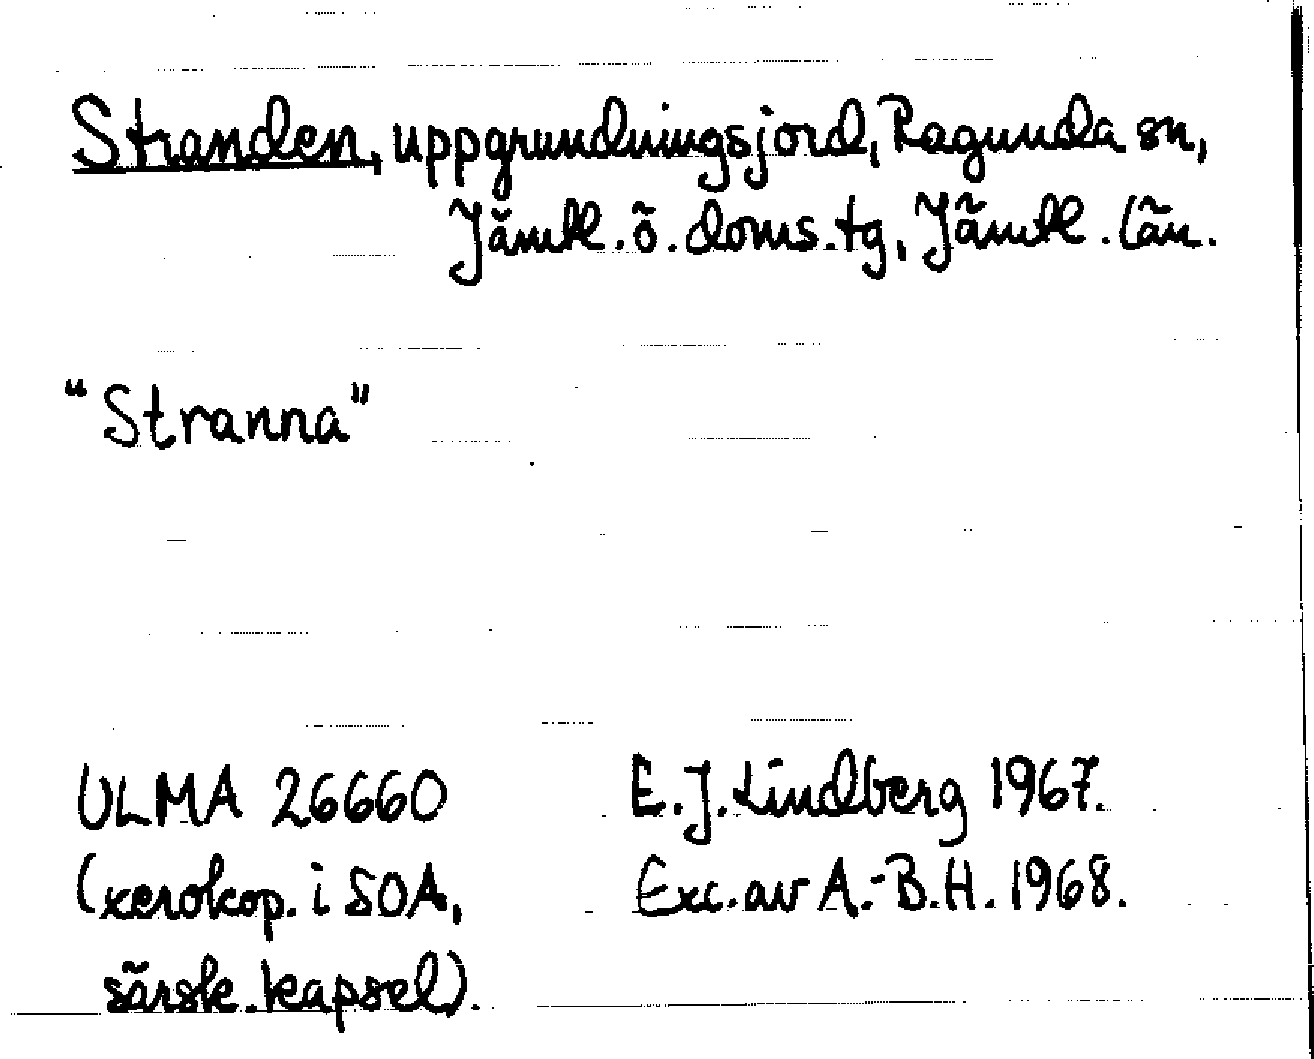 Stranden, uppgrundningsjord, Ragunda sn,
Jämtl. ö. doms. tg, Jämtl. län.
"Stranna"
ULMA 26660
(xerokop. i SOA,
särsk. kapsel).
E. J. Lindberg 1967.
Exc. av A.-B. H. 1968.